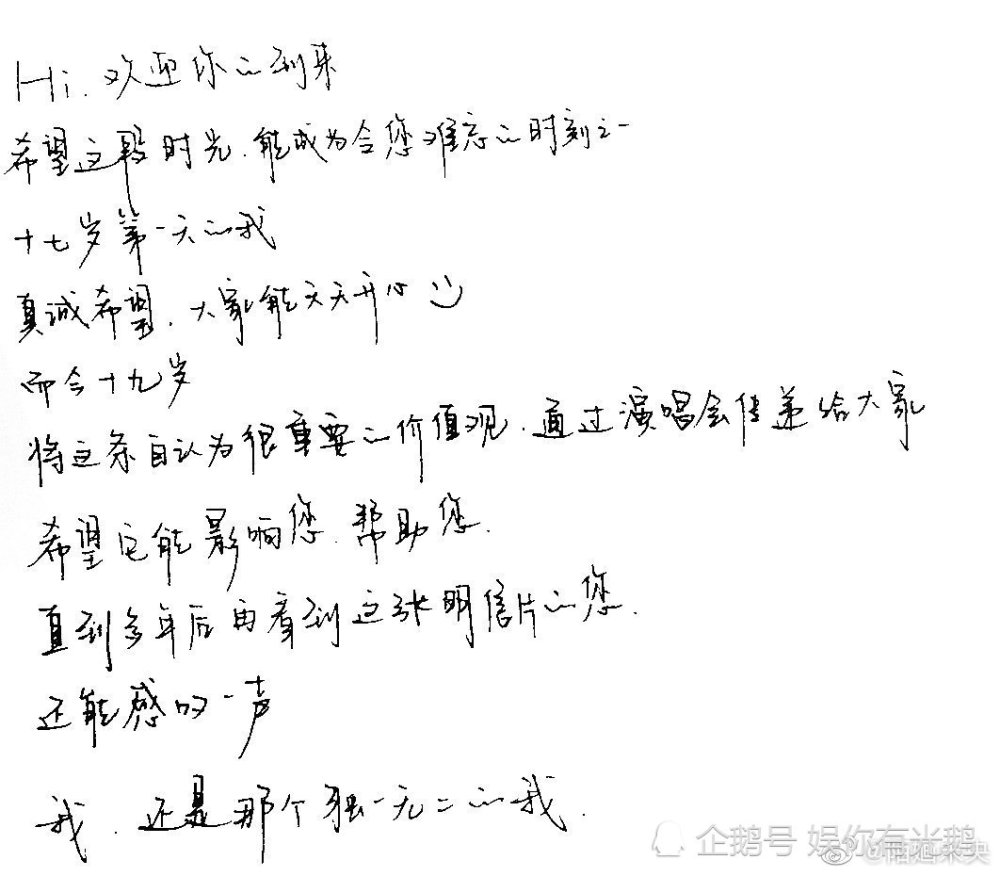 Hi. 欢迎你的到来
希望这段时光.能成为令您难忘的时刻之一
十七岁第一天的我
真诚希望.大家能天天开心
而今十九岁
将这条自认为很重要的价值观.通过演唱会传递给大家
希望它能影响您.帮助您.
直到多年后再看到这张明信片的您.
还能感叹一声
我.还是那个独一无二的我.
企鹅号 娱你有光鹅